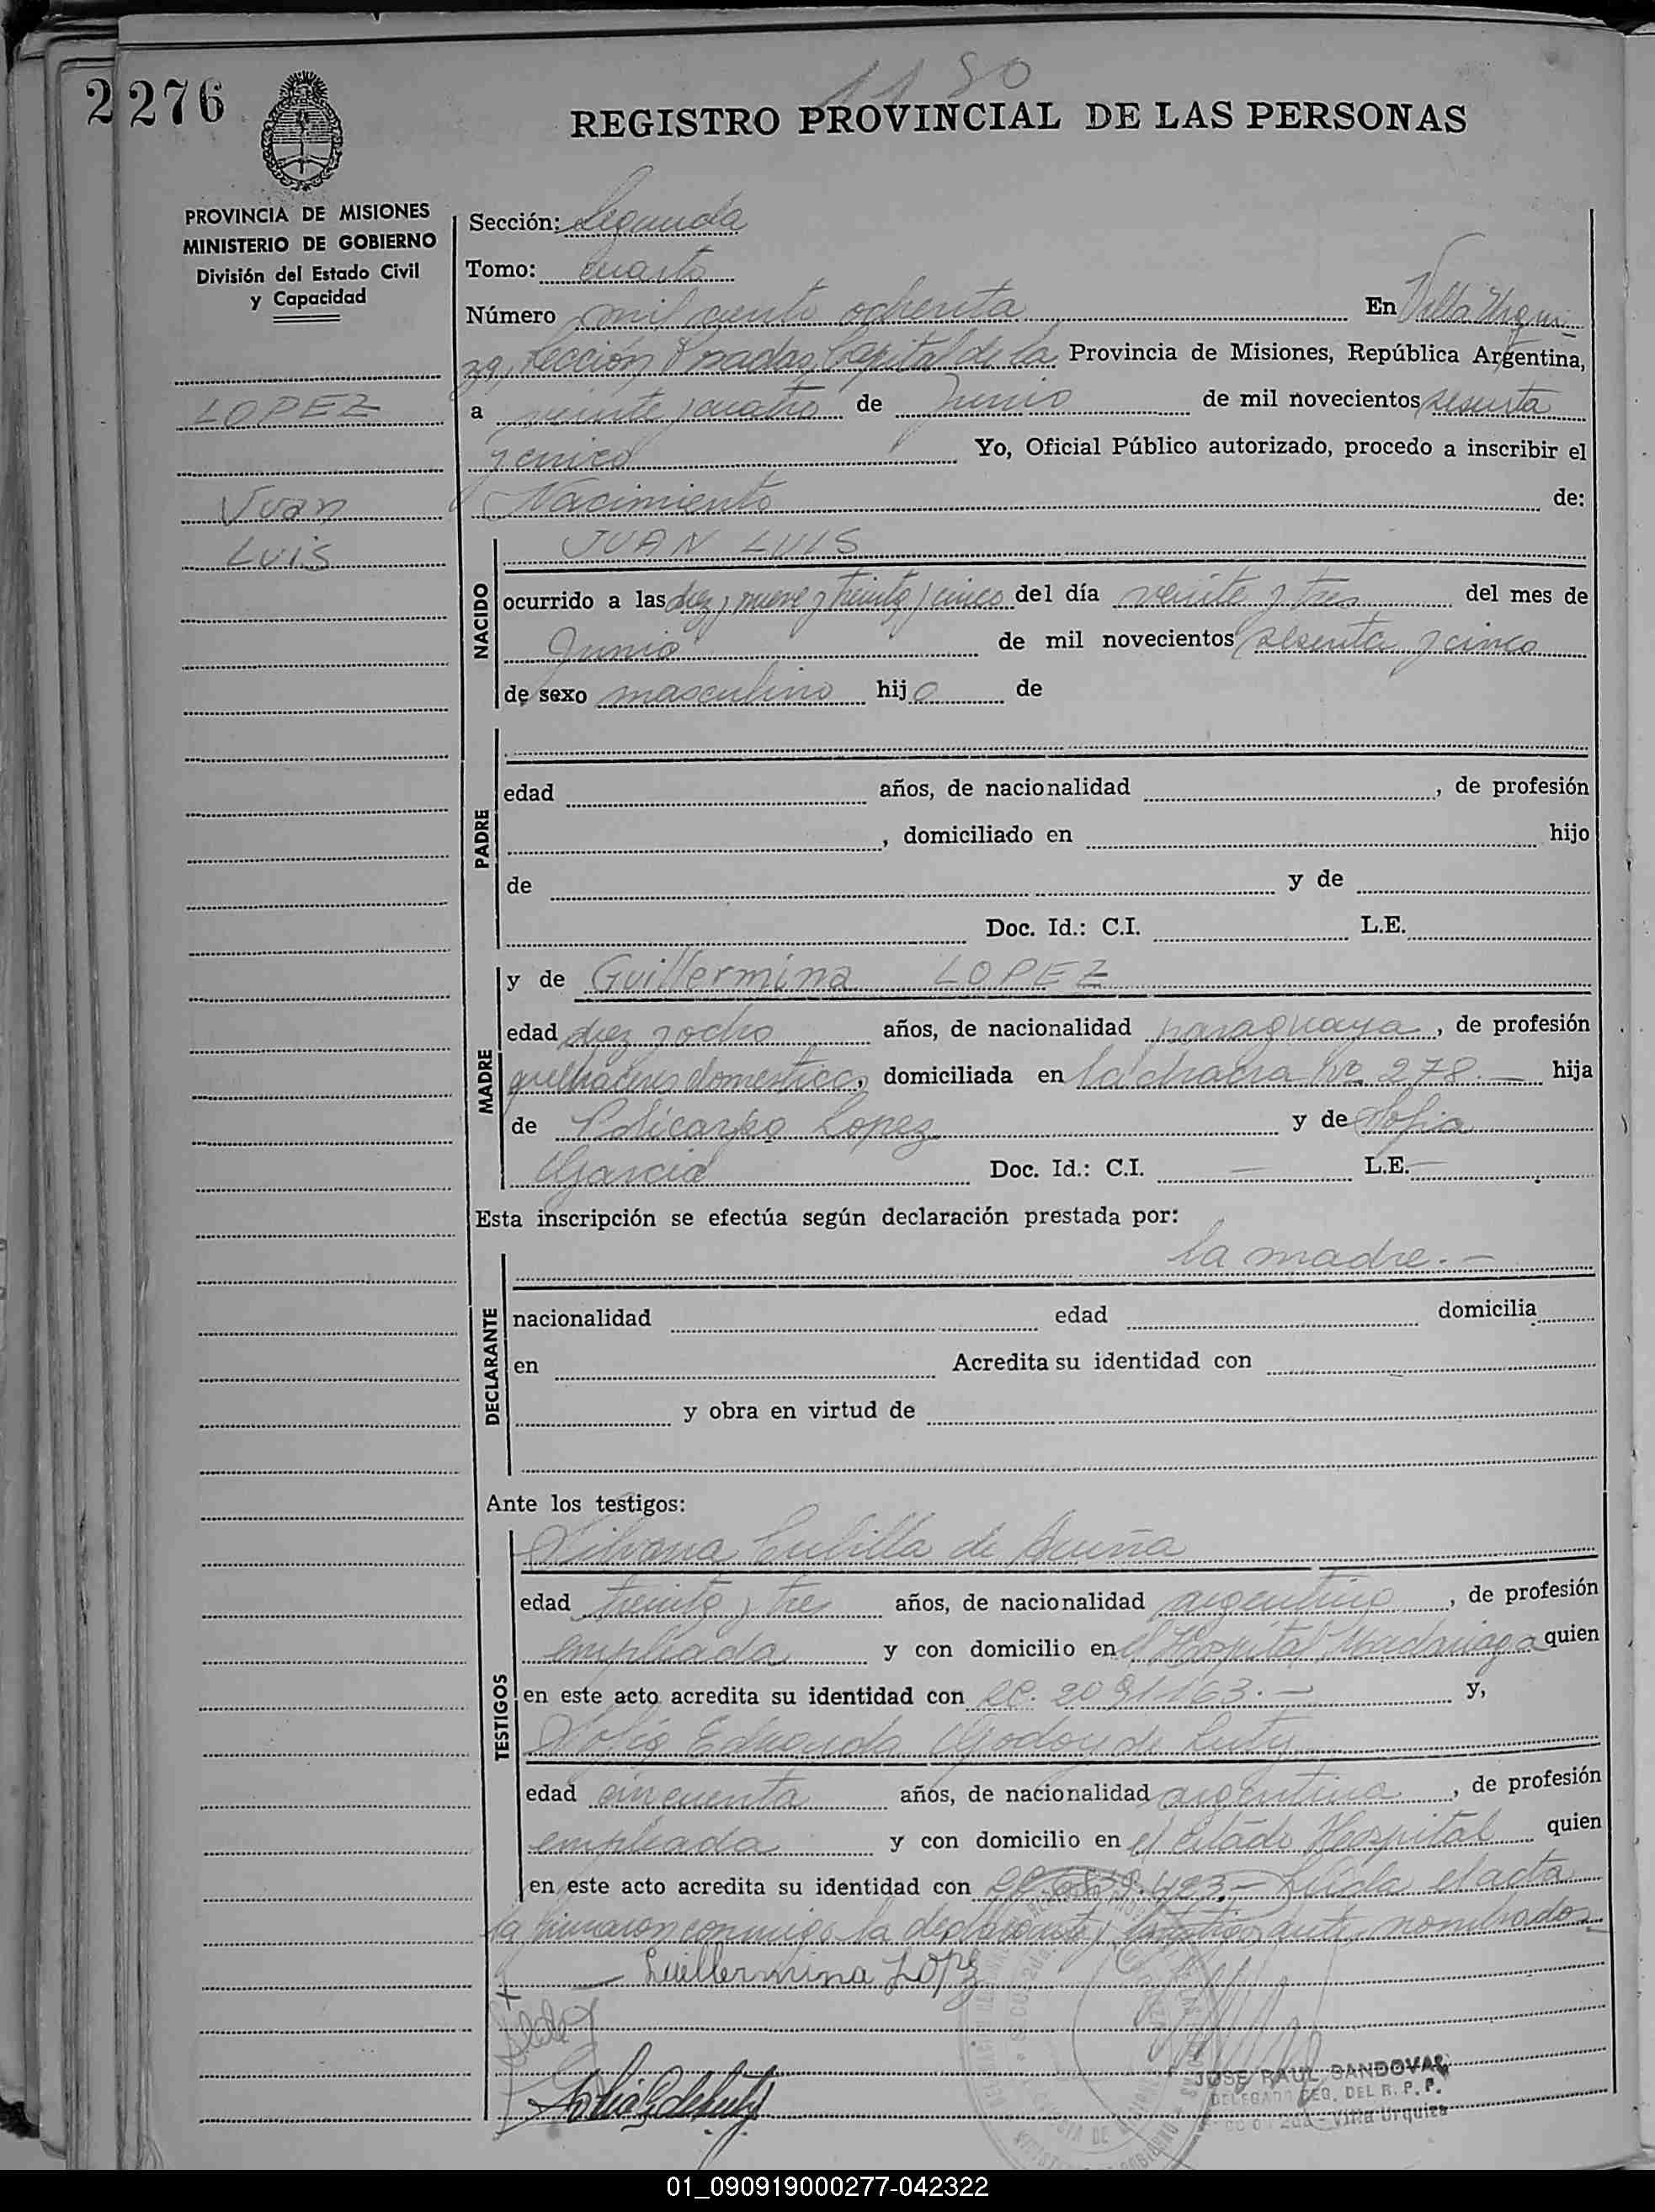 1180
2276
REGISTRO PROVINCIAL DE LAS PERSONAS
PROVINCIA DE MISIONES
MINISTERIO DE GOBIERNO
División del Estado Civil
y Capacidad
LOPEZ
Juan
Luis
Sección: Segunda
Tomo: cuarto
Número mil ciento ochenta En Villa Urqui-
za, Sección Posadas, Capital de la Provincia de Misiones, República Argentina,
a veinte y cuatro de Junio de mil novecientos sesenta
y cinco Yo, Oficial Público autorizado, procedo a inscribir el
Nacimiento de:
NACIDO
JUAN LUIS
ocurrido a las diez y nueve y treinta y cinco del día veinte y tres del mes de
Junio de mil novecientos sesenta y cinco
de sexo masculino hijo de
PADRE
edad años, de nacionalidad , de profesión
, domiciliado en hijo
de y de
Doc. Id.: C.I. L.E.
MADRE
y de Guillermina LOPEZ
edad diez y ocho años, de nacionalidad paraguaya, de profesión
quehaceres domesticos, domiciliada en la chacra Nº 278.— hija
de Policarpo Lopez y de Sofia
Garcia Doc. Id.: C.I. — L.E. —
Esta inscripción se efectúa según declaración prestada por:
DECLARANTE
la madre.—
nacionalidad edad domicilia
en Acredita su identidad con
y obra en virtud de
Ante los testigos:
TESTIGOS
Silvana Cubilla de Acuña
edad treinta y tres años, de nacionalidad argentina, de profesión
empleada y con domicilio en el Hospital Madariaga quien
en este acto acredita su identidad con y,
Sofia Eduarda Godoy de
edad cincuenta años, de nacionalidad argentina, de profesión
empleada y con domicilio en el citado Hospital quien
en este acto acredita su identidad con Leida el acta
la firmaron conmigo la declarante y testigos ante nombrados—
Guillermina Lopez
JOSE RAUL SANDOVAL
DELEGADO REG. DEL R. P. P.
Villa Urquiza
01_090919000277-042322